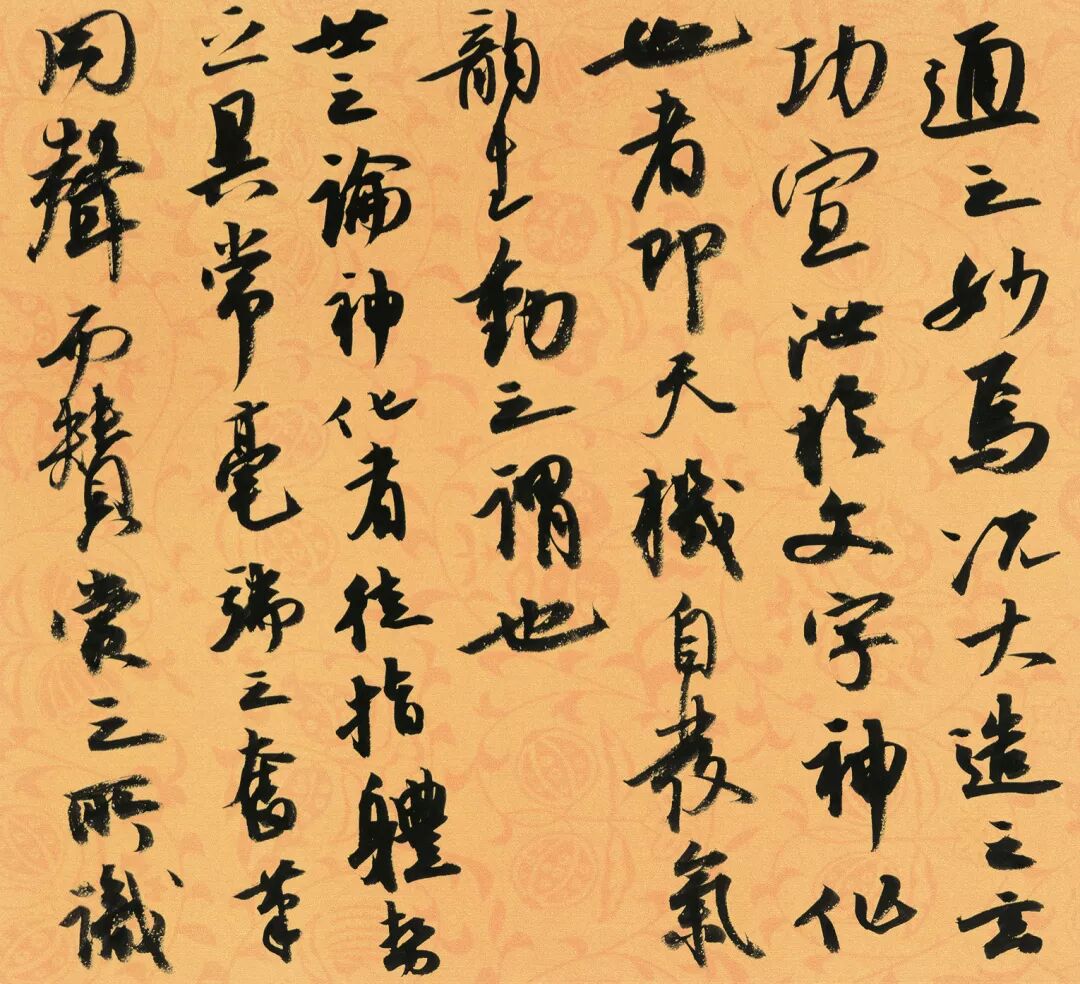 通之妙焉况大造之玄
功宣泄於文字神化
也者即天機自發氣
韵生動之謂也
世之論神化者徒指體勢
之異常毫端之奮筆
同聲而贊賞之所識